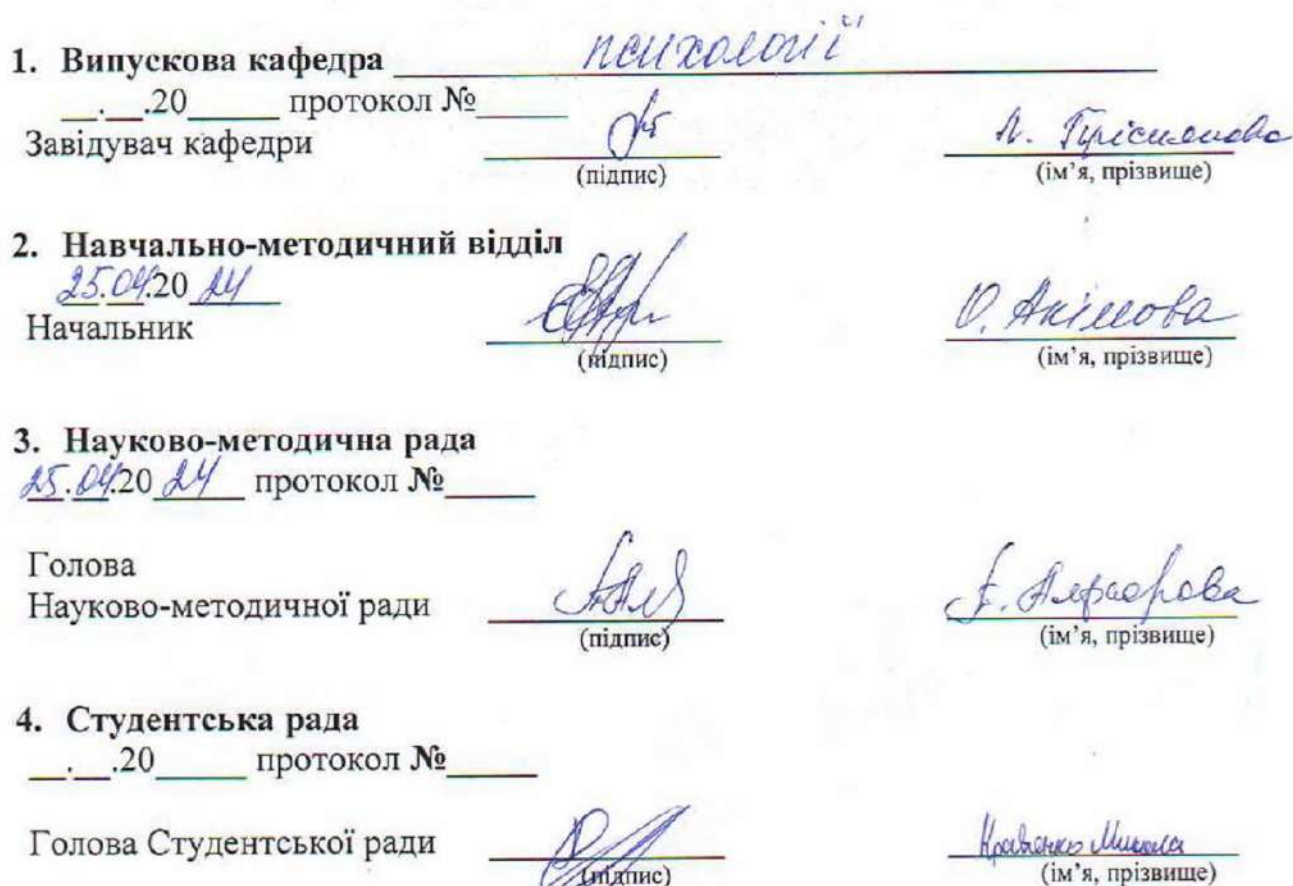 1. Випускова кафедра психології
__.__.20_____ протокол №_____
Завідувач кафедри
(підпис) (ім’я, прізвище)
2. Навчально-методичний відділ
25.04.20 24
Начальник О. Акімова
(підпис) (ім’я, прізвище)
3. Науково-методична рада
25.04.20 24 протокол №_____
Голова
Науково-методичної ради
(підпис) (ім’я, прізвище)
4. Студентська рада
__.__.20_____ протокол №_____
Голова Студентської ради Кравченко Микола
(підпис) (ім’я, прізвище)